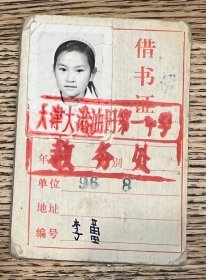 借书证
天津大港油田第一中学
教务处
年 别
单位 96 8
地址
编号 李蕾